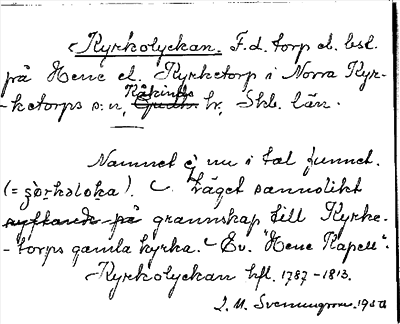 Kyrkolyckan. F.d. torp el. bst.
på Hene el. Kyrketorp i Norra Kyr-
-ketorps s:n, Kåkinds hr, Skb. län.
Namnet ej nu i tal funnet.
(= ). Läget sannolikt
syftande på grannskap till Kyrke-
-torps gamla kyrka. Ev. "Hene Kapell".
Kyrkolyckan hfl. 1787-1813.